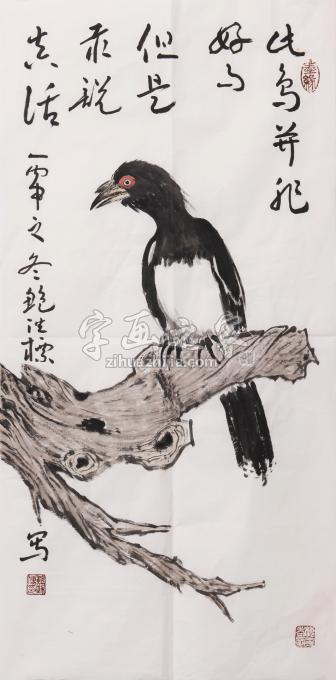 此鸟并非
好鸟
但是
敢说
真话
之冬鲍洪标
写
字画之家
zihuazhijia.com